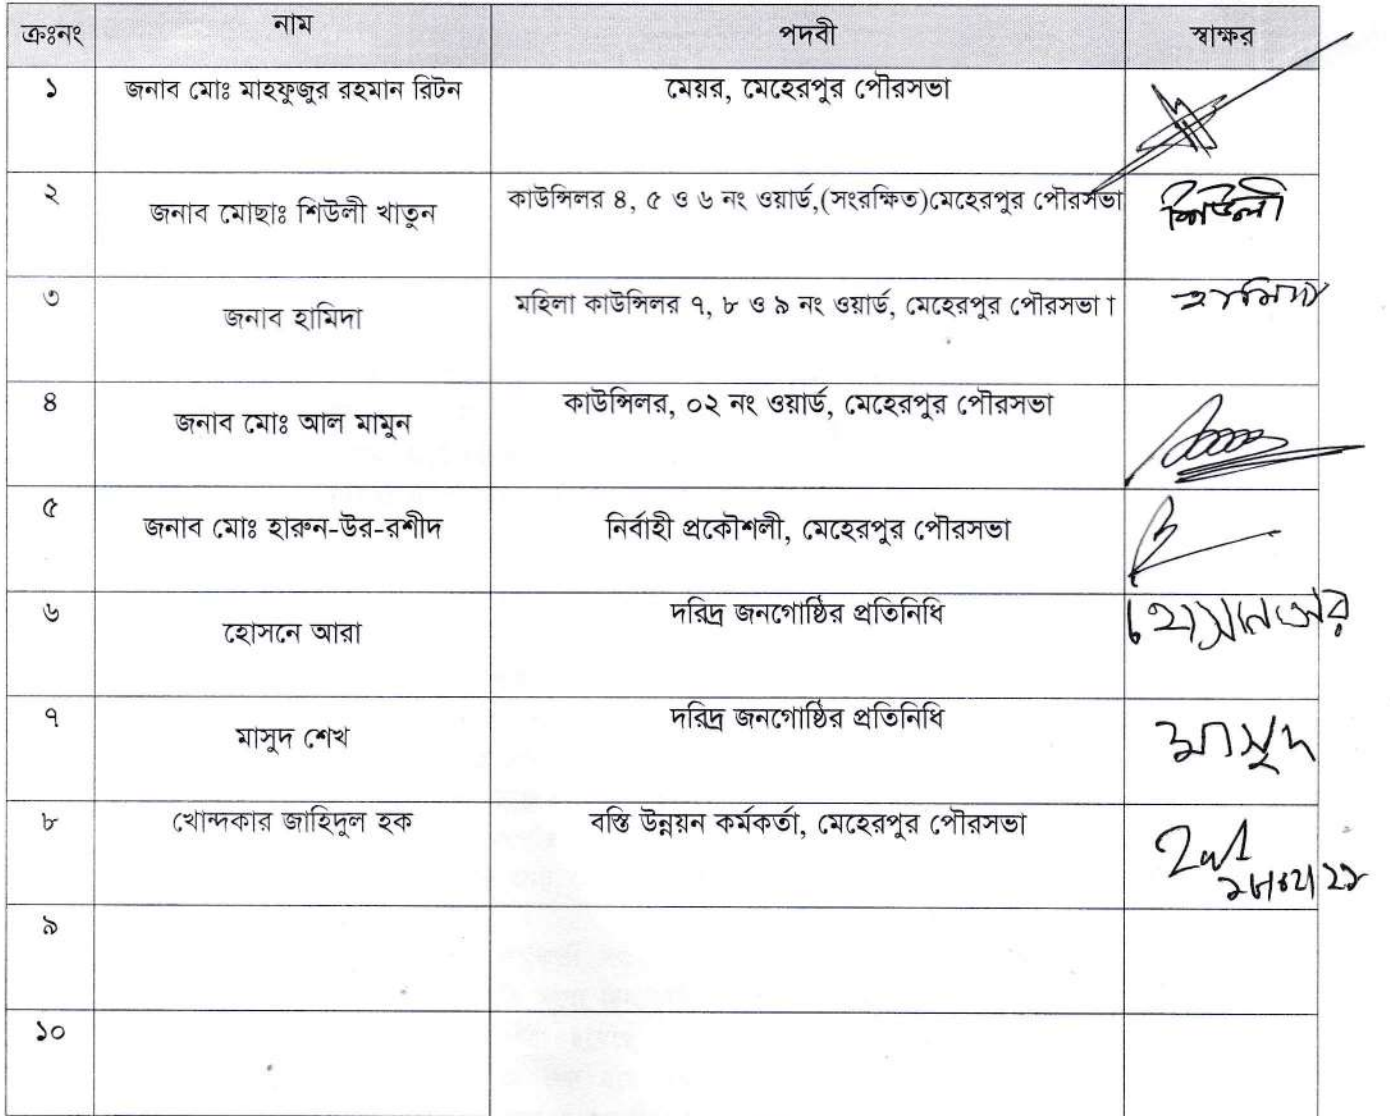 ক্রঃনং নাম পদবী স্বাক্ষর
১ জনাব মোঃ মাহফুজুর রহমান রিটন মেয়র, মেহেরপুর পৌরসভা
২ জনাব মোছাঃ শিউলী খাতুন কাউন্সিলর ৪, ৫ ও ৬ নং ওয়ার্ড,(সংরক্ষিত)মেহেরপুর পৌরসভা শিউলী
৩ জনাব হামিদা মহিলা কাউন্সিলর ৭, ৮ ও ৯ নং ওয়ার্ড, মেহেরপুর পৌরসভা। হামিদা
৪ জনাব মোঃ আল মামুন কাউন্সিলর, ০২ নং ওয়ার্ড, মেহেরপুর পৌরসভা
৫ জনাব মোঃ হারুন-উর-রশীদ নির্বাহী প্রকৌশলী, মেহেরপুর পৌরসভা
৬ হোসনে আরা দরিদ্র জনগোষ্ঠির প্রতিনিধি
৭ মাসুদ শেখ দরিদ্র জনগোষ্ঠির প্রতিনিধি মাসুদ
৮ খোন্দকার জাহিদুল হক বস্তি উন্নয়ন কর্মকর্তা, মেহেরপুর পৌরসভা
৯
১০